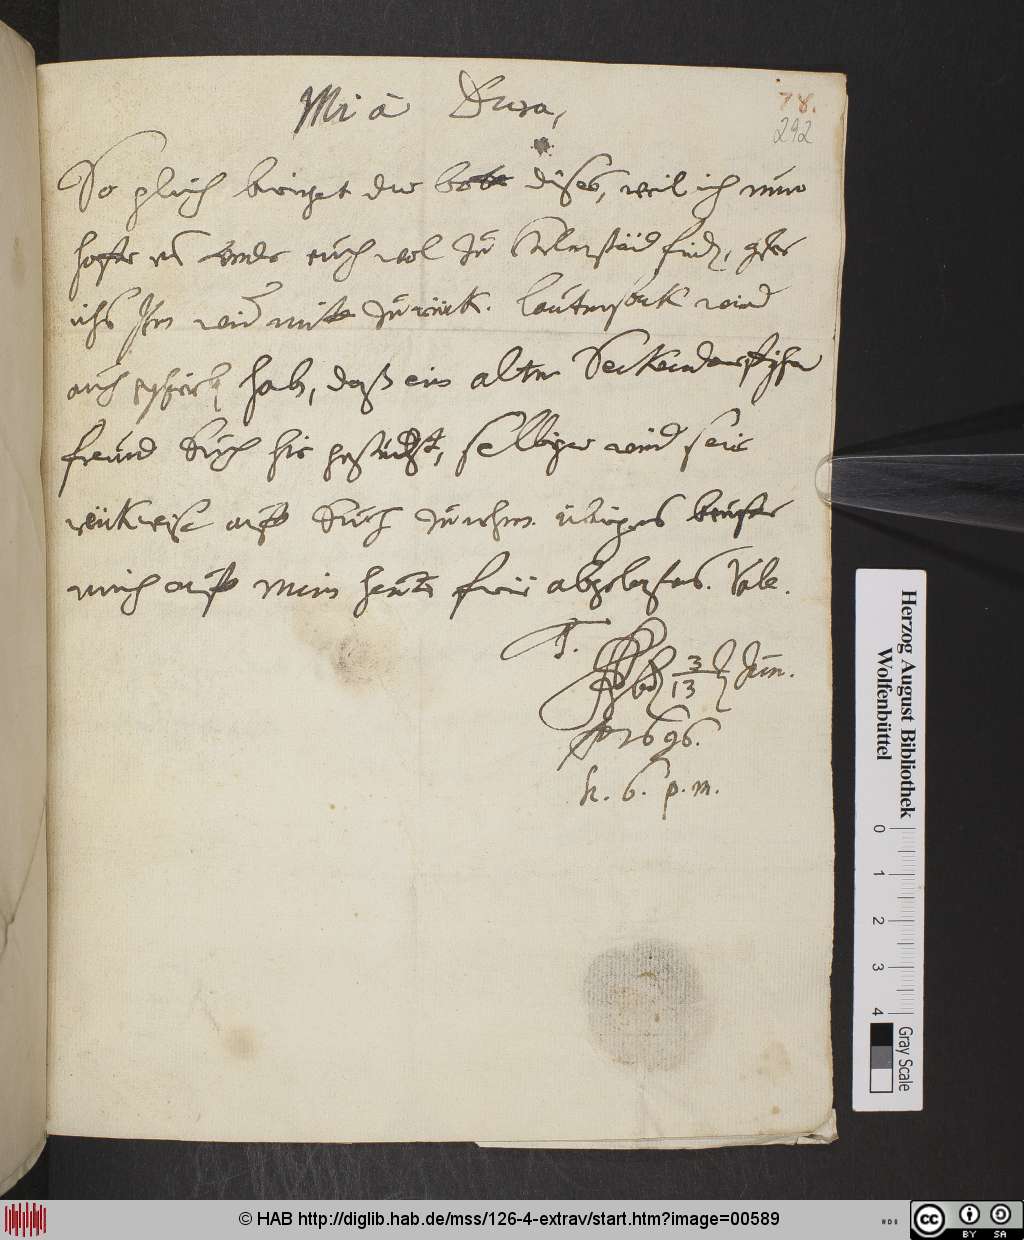 Mi ā Dura,
78.
292
So gleich bringet der botte dises, weil ich nun
hoffe er werde euch wol zu Helmstäd finden,
ichs Ihm wider mitt zurück. wird
auch haben, daß ein alter Seckendorffischer
freund Euch hie gesucht, selbiger wird seine
rückreise auff Euch zu nehmen. übriges beruffe
mich auff mein heute frü abgelegtes. Vale.
T.
3/13 Jun.
1696.
h. 6. p. m.
Herzog August Bibliothek
Wolfenbüttel
0 1 2 3 4
Gray Scale
© HAB http://diglib.hab.de/mss/126-4-extrav/start.htm?image=00589
cc BY SA